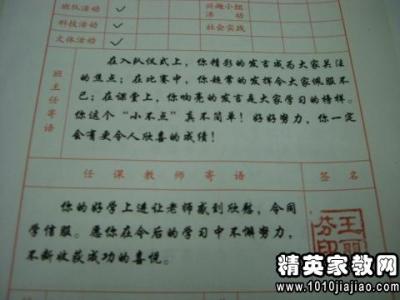 班队活动 ✓ 兴趣小组活动
科技活动 ✓ 社会实践
文体活动 ✓
班主任寄语
在入队仪式上，你精彩的发言成为大家关注
的焦点；在比赛中，你超常的发挥令大家佩服不
已；在课堂上，你响亮的发言是大家学习的榜样。
你这个“小不点”真不简单！好好努力，你一定
会有更令人欣喜的成绩！
任课教师寄语 签名
你的好学上进让老师感到欣慰，令同
学信服。愿你在今后的学习中不懈努力，
不断收获成功的喜悦。
王丽芬印
精英家教网
www.1010jiajiao.com